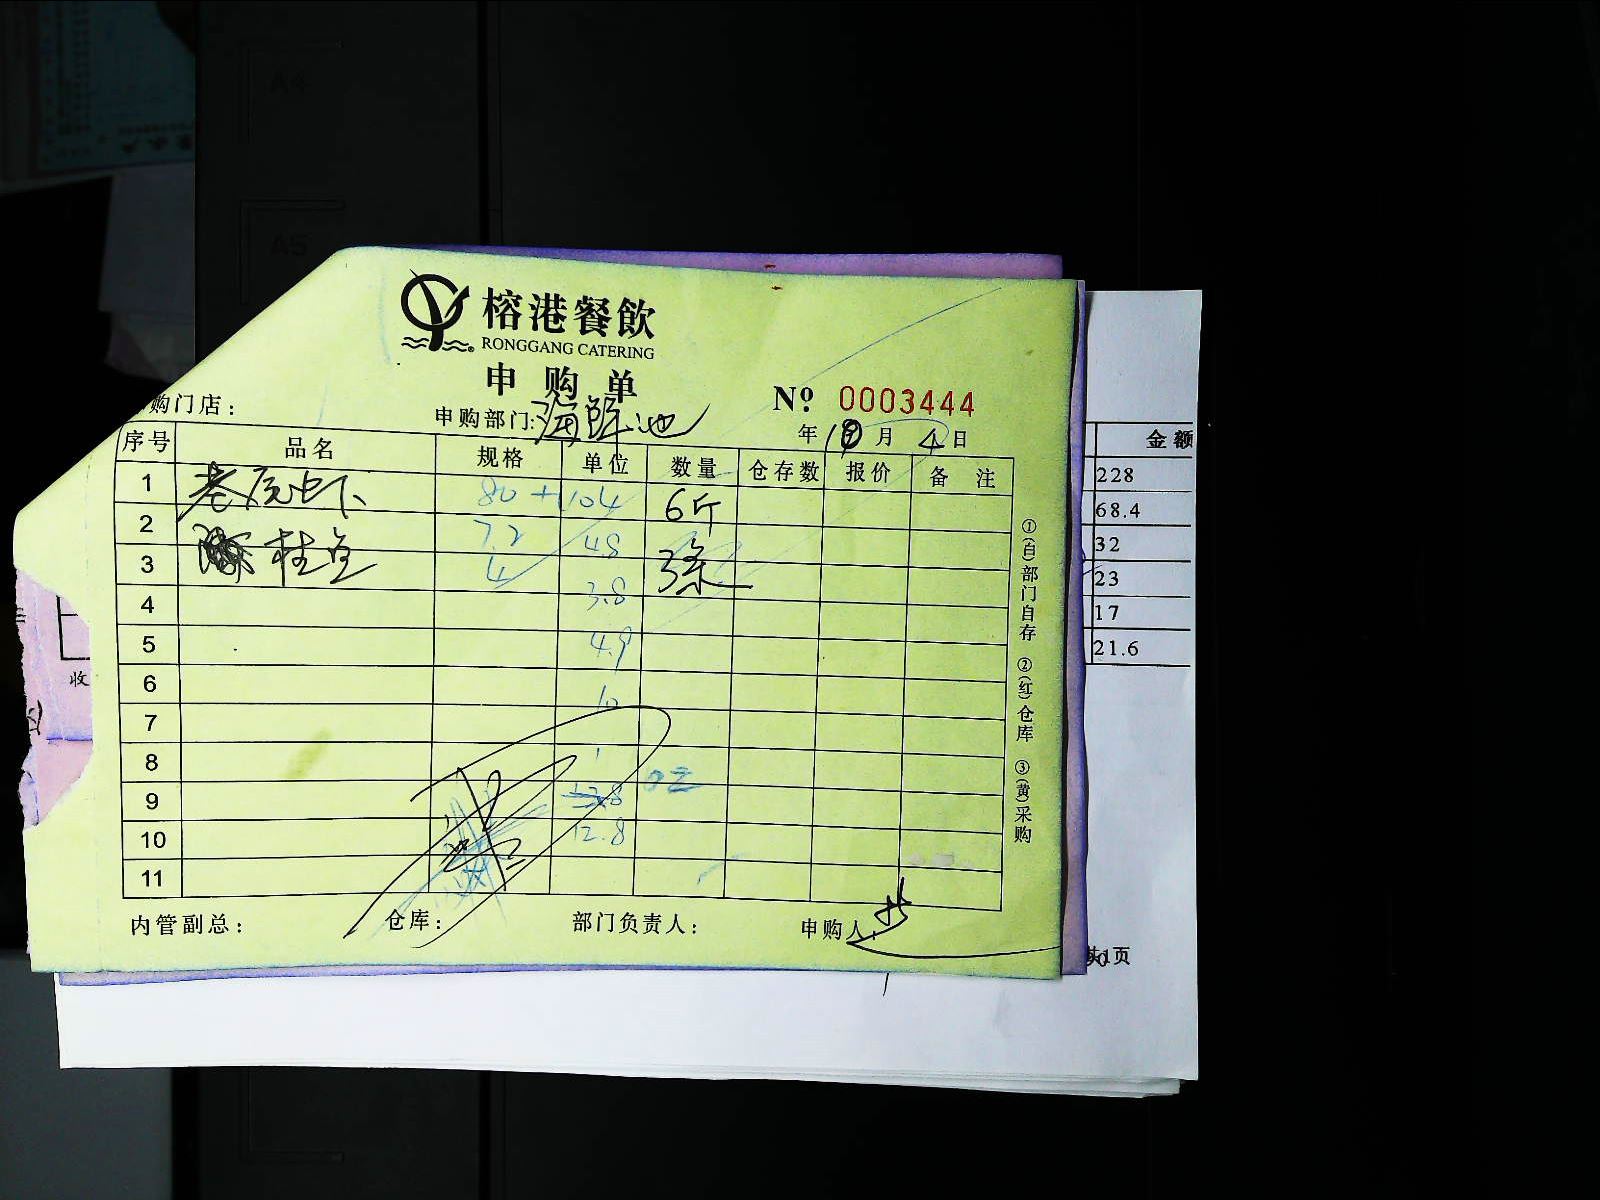 A4
A5
榕港餐飲
RONGGANG CATERING
申购单
购门店：
申购部门:海鲜池
Nº 0003444
年 10 月 4 日
序号 品名 规格 单位 数量 仓存数 报价 备注
1 老虎虾 80 + 104 6斤
2 桂鱼 72 48 3条
3 4
4 3.8
5 4.9
6 10
7
8 1
9
10 12.8
11
①(白)部门自存 ②(红)仓库 ③(黄)采购
内管副总： 仓库： 部门负责人： 申购人:
金额
228
68.4
32
23
17
21.6
共1页
收